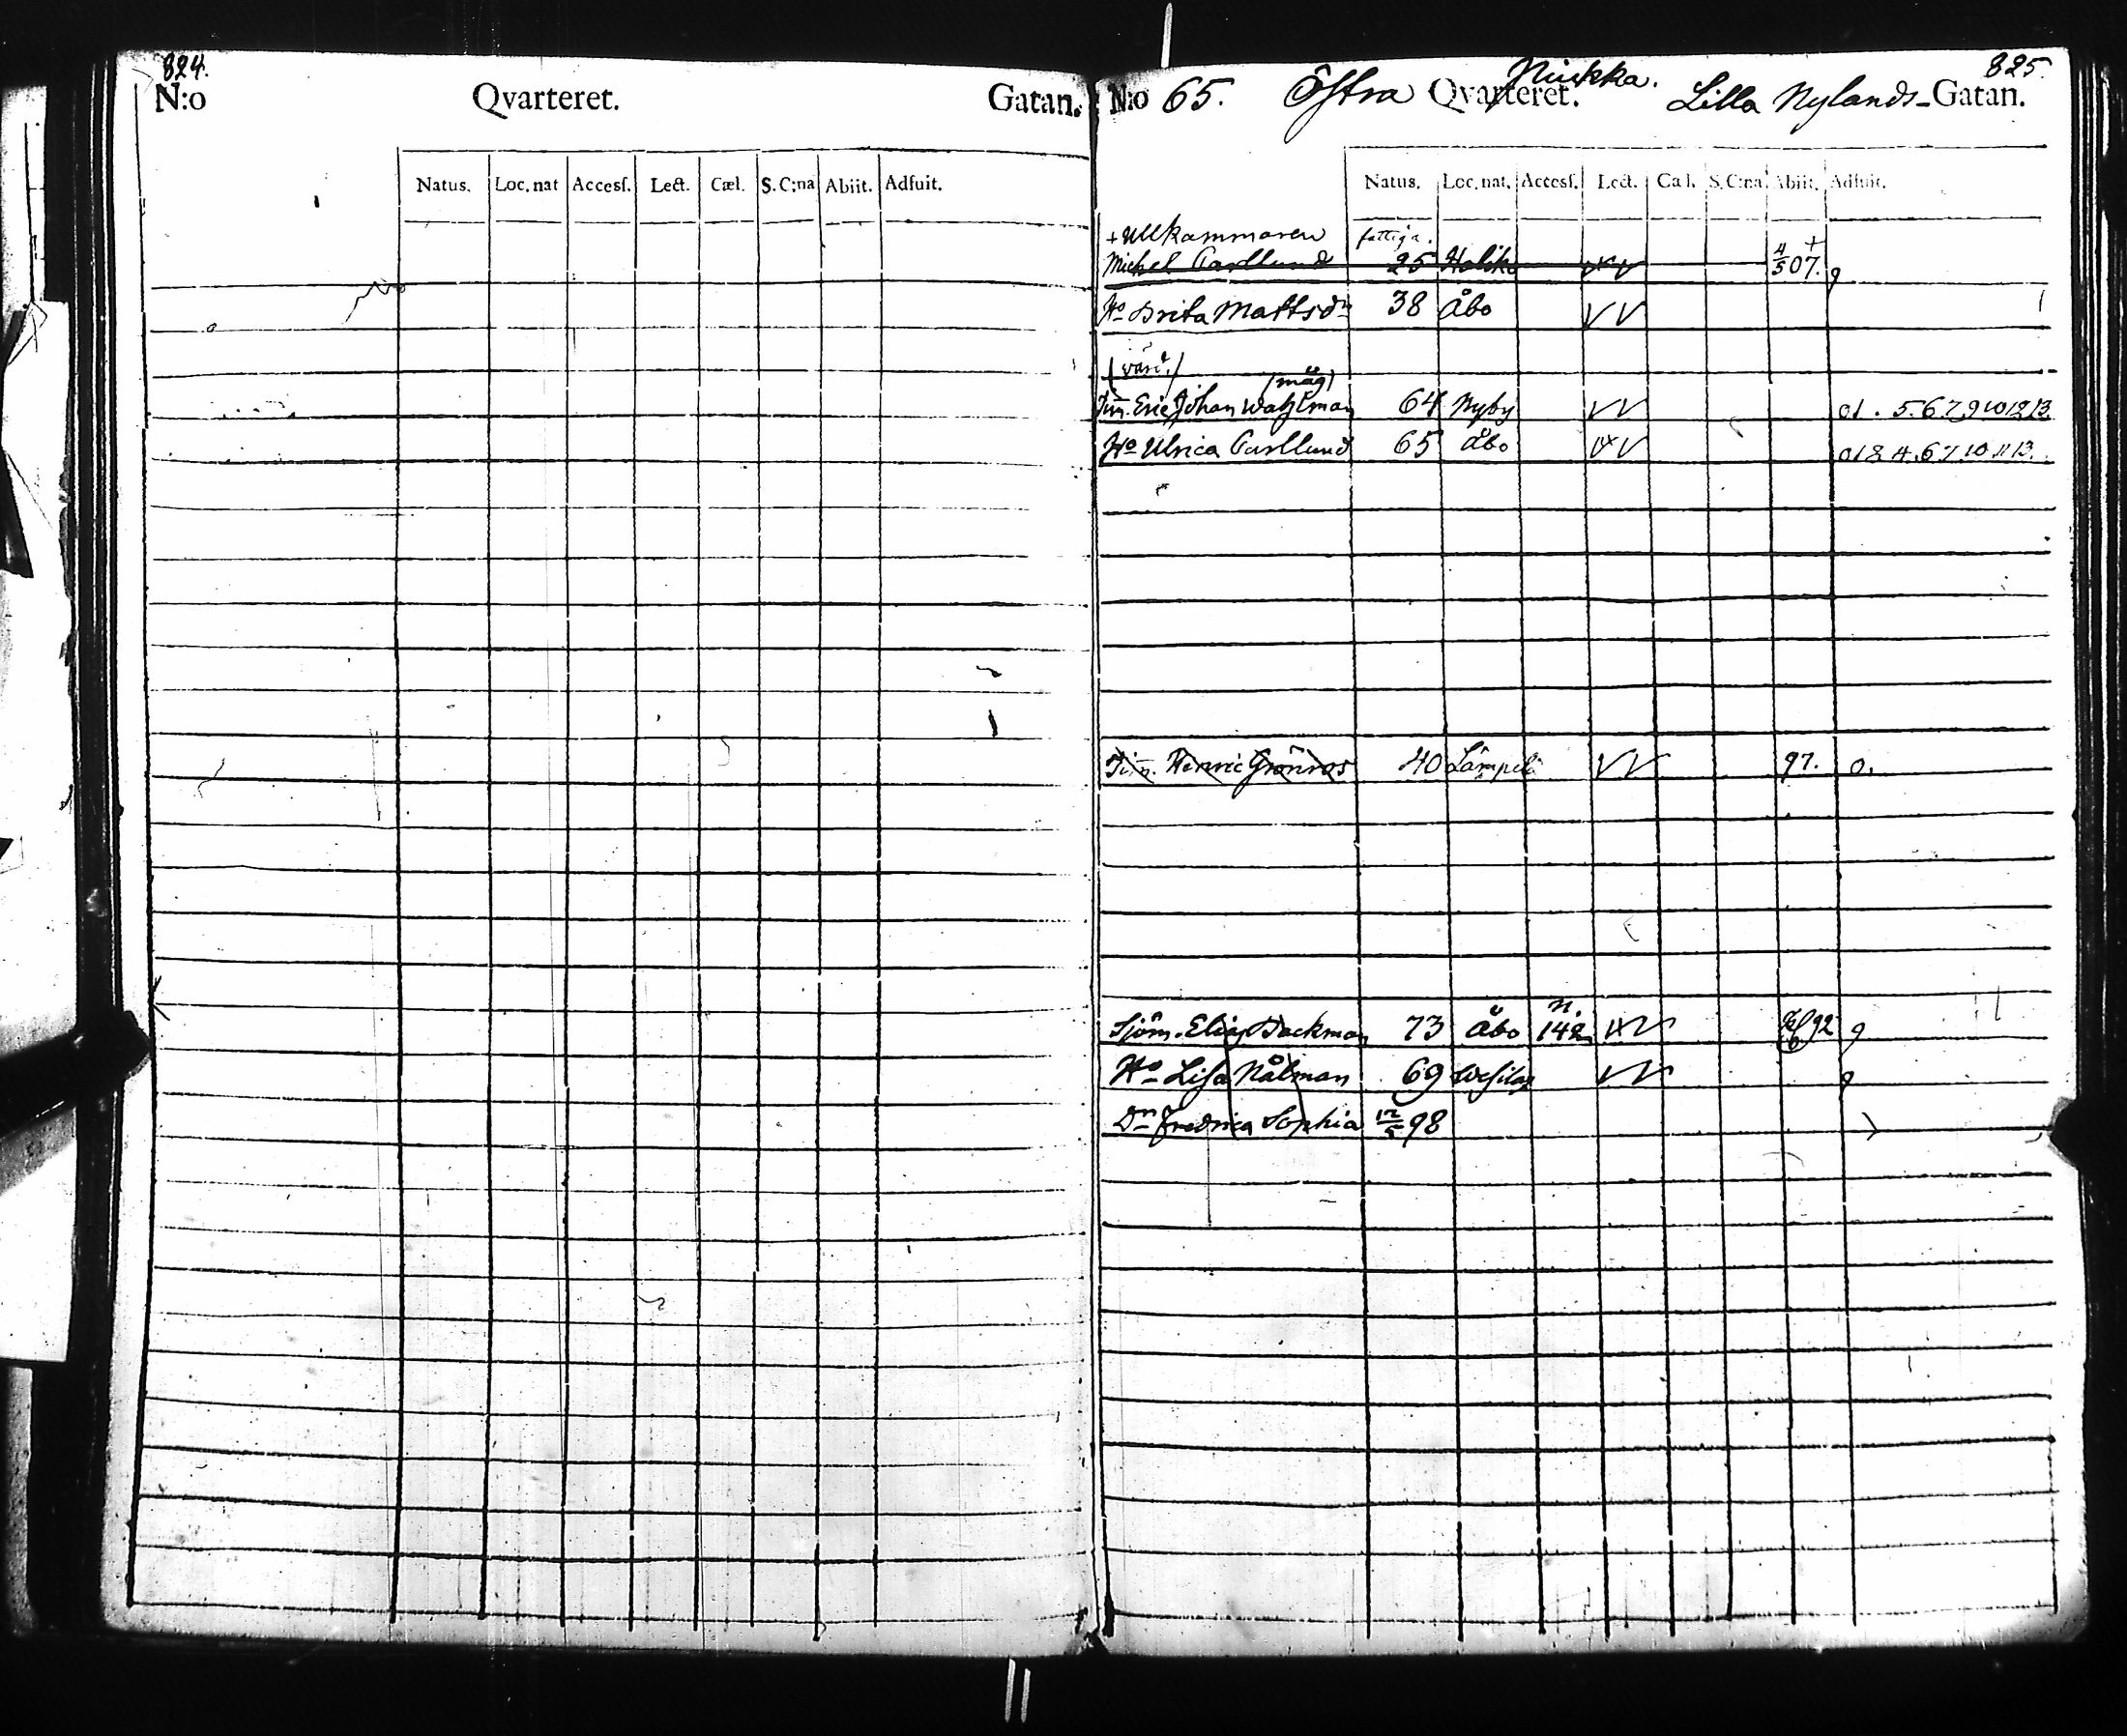 824.
N:o Qvarteret. Gatan.
Natus. Loc. nat Accesſ. Lect. Cæl. S. C:na Abiit. Adfuit.
825.
N:o 65. Östra Qvarteret. Nirkka. Lilla Nylands-Gatan.
Natus. Loc. nat. Accesſ. Lect. Cæl. S. C:na Abiit. Adfuit.
+ Ullkammaren fattiga.
Michel Carllund 25 Haliko 4/5 07. +
Ho Brita Mattsdr 38 Åbo
(värd.) (måg)
Tim. Eric Johan Wahlman 64 Nyby 01. 5. 6. 7. 9 10 12 13.
Ho Ulrica Carllund 65 Åbo 012 4. 6 7. 10 11 13.
Tim. Henric Grönros 40 Lämpelä 97. 0.
Sjöm. Elias Backman 73 Åbo n. 142 92
Ho Lisa Nålman 69 Wesilax
Dr Fredrica Sophia 12/5 98